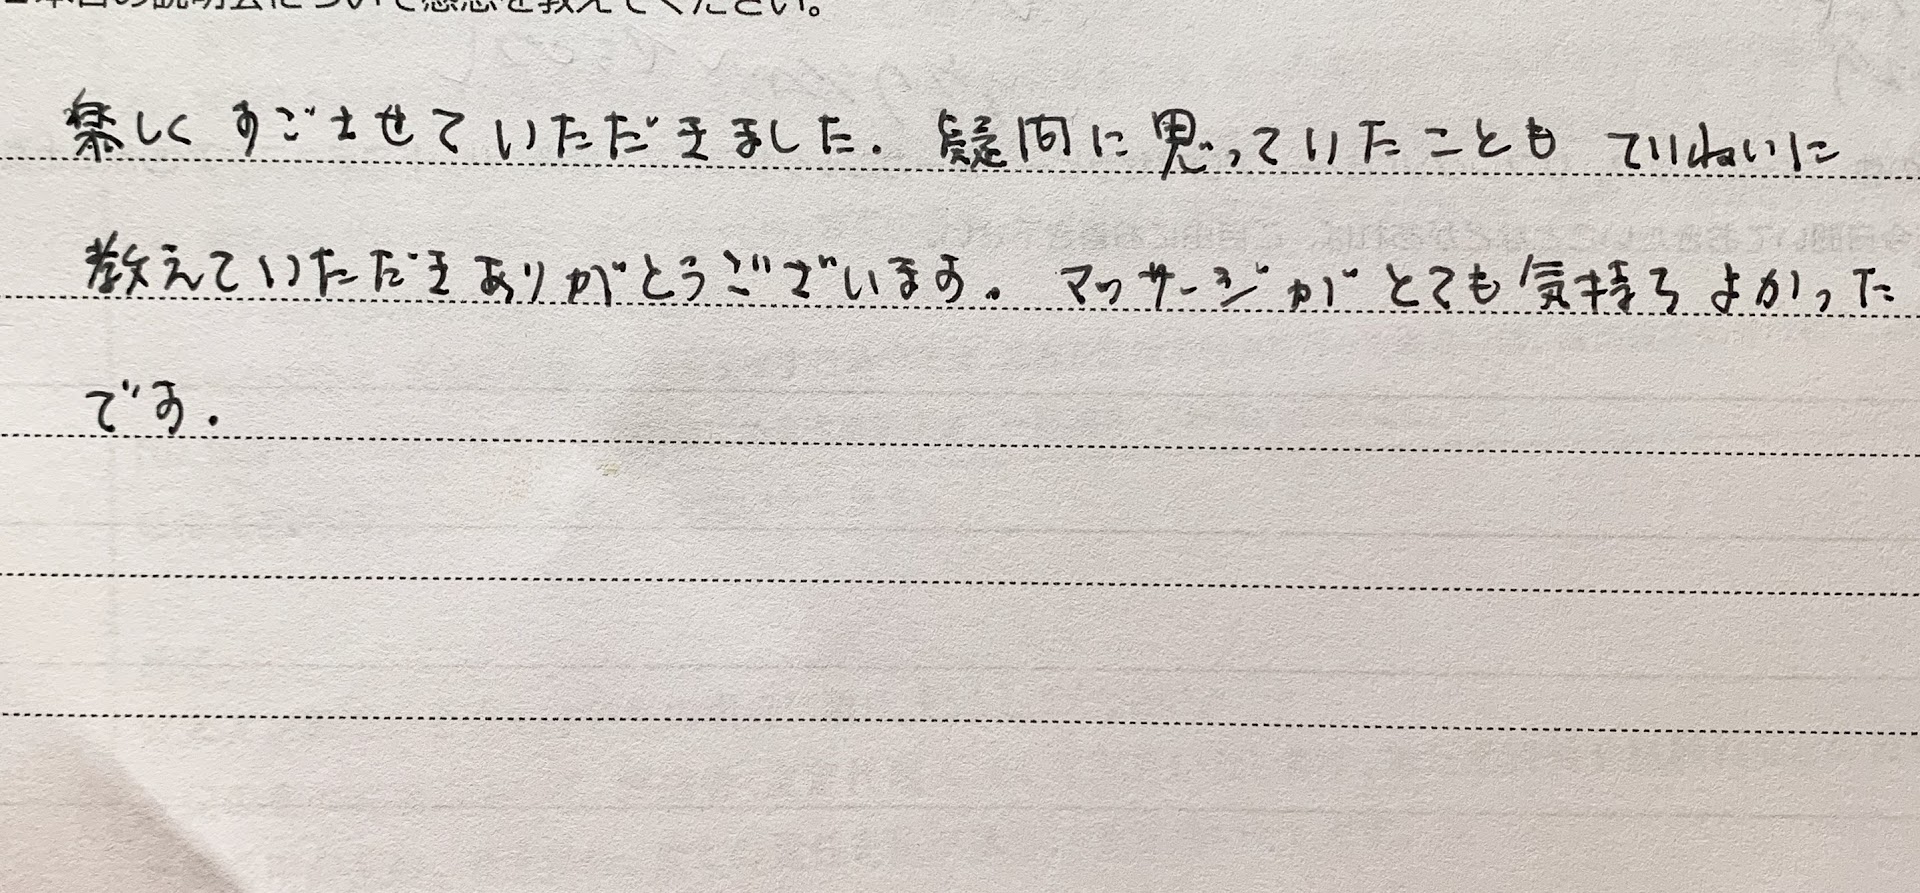 本日の説明会について感想を教えてください。
楽しくすごさせていただきました。疑問に思っていたことも ていねいに
教えていただきありがとうございます。マッサージがとても気持ちよかった
です。